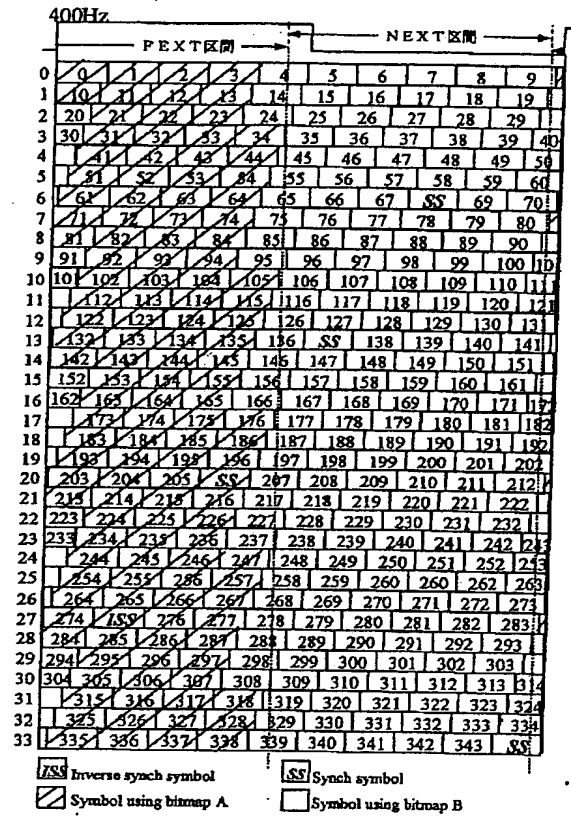 400Hz
FEXT区間 NEXT区間
0 0 1 2 3 4 5 6 7 8 9
1 10 11 12 13 14 15 16 17 18 19
2 20 21 22 23 24 25 26 27 28 29
3 30 31 32 33 34 35 36 37 38 39 40
4 41 42 43 44 45 46 47 48 49 50
5 51 52 53 54 55 56 57 58 59 60
6 61 62 63 64 65 66 67 SS 69 70
7 71 72 73 74 75 76 77 78 79 80
8 81 82 83 84 85 86 87 88 89 90
9 91 92 93 94 95 96 97 98 99 100
10 101 102 103 104 105 106 107 108 109 110 111
11 112 113 114 115 116 117 118 119 120 121
12 122 123 124 125 126 127 128 129 130 131
13 132 133 134 135 136 SS 138 139 140 141
14 142 143 144 145 146 147 148 149 150 151
15 152 153 154 155 156 157 158 159 160 161
16 162 163 164 165 166 167 168 169 170 171 172
17 173 174 175 176 177 178 179 180 181 182
18 183 184 185 186 187 188 189 190 191 192
19 193 194 195 196 197 198 199 200 201 202
20 203 204 205 SS 207 208 209 210 211 212
21 213 214 215 216 217 218 219 220 221 222
22 223 224 225 226 227 228 229 230 231 232
23 233 234 235 236 237 238 239 240 241 242 243
24 244 245 246 247 248 249 250 251 252 253
25 254 255 256 257 258 259 260 260 262 263
26 264 265 266 267 268 269 270 271 272 273
27 274 ISS 276 277 278 279 280 281 282 283
28 284 285 286 287 288 289 290 291 292 293
29 294 295 296 297 298 299 300 301 302 303
30 304 305 306 307 308 309 310 311 312 313 314
31 315 316 317 318 319 320 321 322 323 324
32 325 326 327 328 329 330 331 332 333 334
33 335 336 337 338 339 340 341 342 343 SS
ISS Inverse synch symbol SS Synch symbol
Symbol using bitmap A Symbol using bitmap B